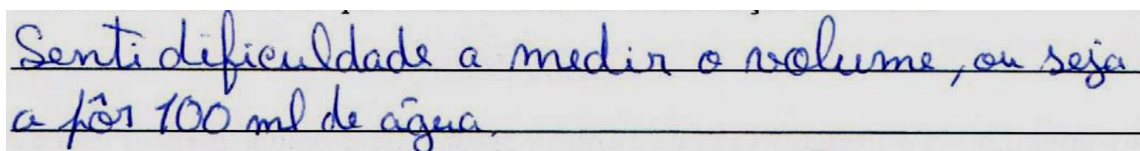 Senti dificuldade a medir o volume, ou seja
a pôr 100 ml de água.